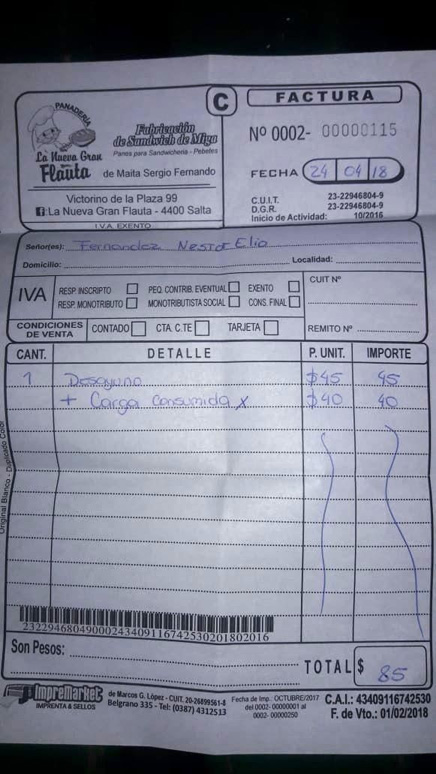 PANADERÍA
La Nueva Gran
Flauta
Fabricación
de Sandwich de Miga
Panes para Sandwichería - Pebetes
de Maita Sergio Fernando
Victorino de la Plaza 99
La Nueva Gran Flauta - 4400 Salta
I.V.A. EXENTO
C
FACTURA
Nº 0002- 00000115
FECHA 24 04 18
C.U.I.T. 23-22946804-9
D.G.R. 23-22946804-9
Inicio de Actividad: 10/2016
Señor(es): Fernandez Nestor Elio
Domicilio: Localidad:
IVA
RESP. INSCRIPTO PEQ. CONTRIB. EVENTUAL EXENTO
RESP. MONOTRIBUTO MONOTRIBUTISTA SOCIAL CONS. FINAL
CUIT Nº
CONDICIONES DE VENTA CONTADO CTA. C.TE TARJETA
REMITO Nº
CANT. DETALLE P. UNIT. IMPORTE
1 Desayuno $45 45
+ Carga Consumida x $40 40
Original Blanco - Duplicado Color
2322946804900024340911674253020180 2016
Son Pesos:
TOTAL $ 85
ImpreMarket
IMPRENTA & SELLOS
de Marcos G. López - CUIT. 20-26899561-8
Belgrano 335 - Tel: (0387) 4312513
Fecha de Imp. OCTUBRE/2017
del 0002- 00000001 al
0002- 00000250
C.A.I.: 43409116742530
F. de Vto.: 01/02/2018